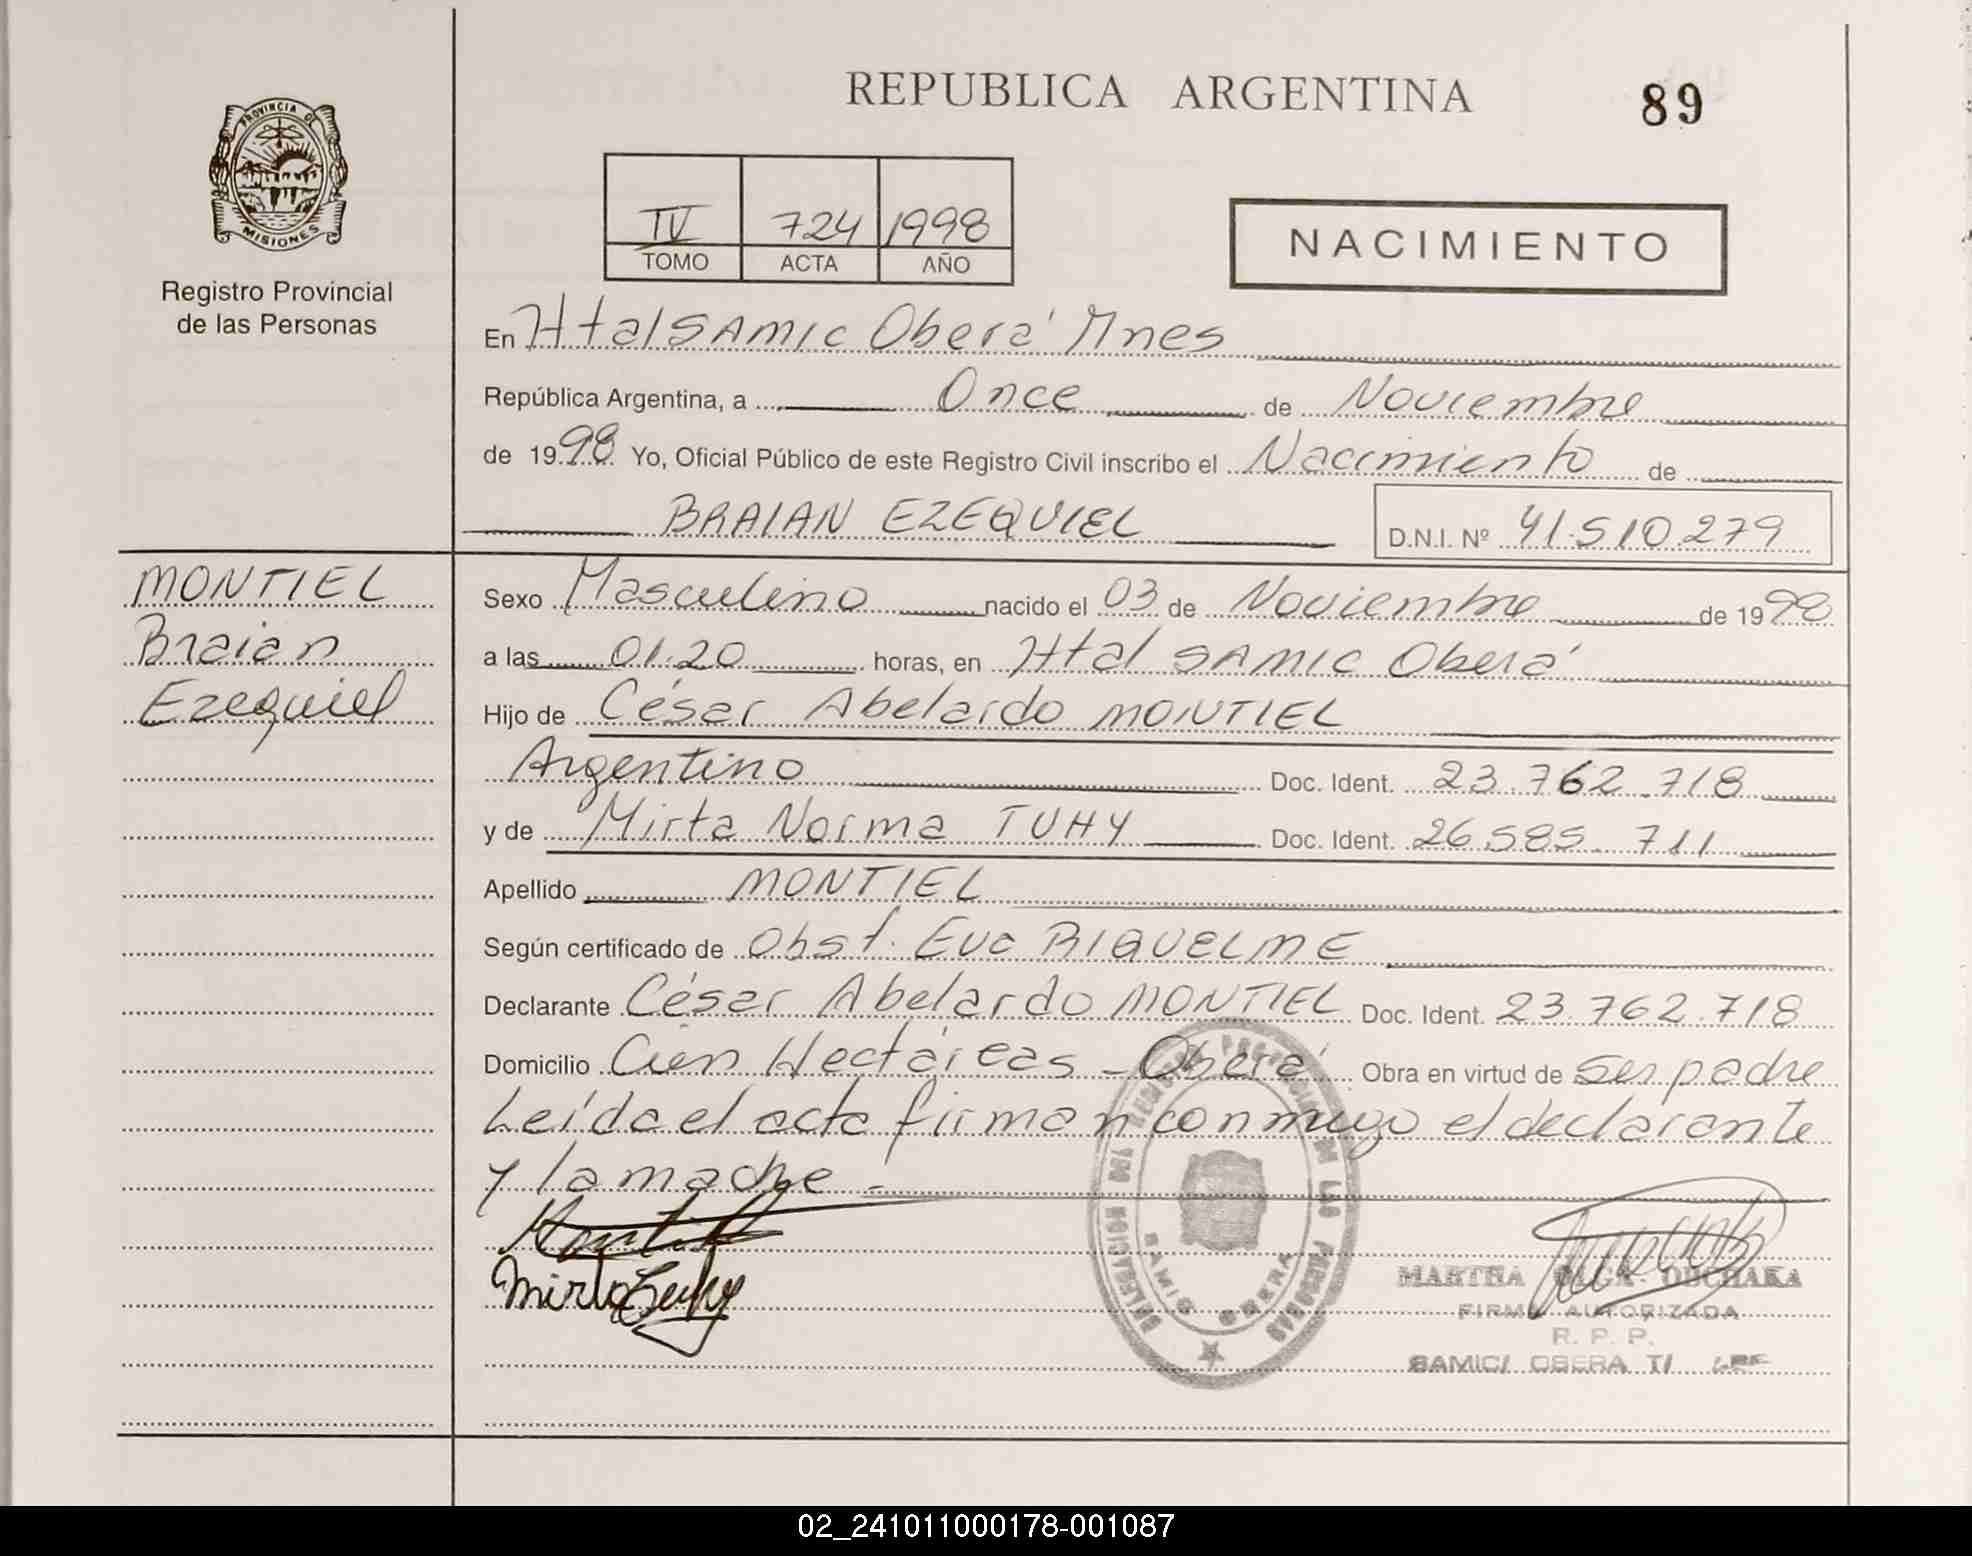 REPUBLICA ARGENTINA
89
PROVINCIA DE
MISIONES
Registro Provincial
de las Personas
IV 724 1998
TOMO ACTA AÑO
NACIMIENTO
En Htal SAMIC Oberá Mnes
República Argentina, a Once de Noviembre
de 1998 Yo, Oficial Público de este Registro Civil inscribo el Nacimiento de
BRAIAN EZEQUIEL
D.N.I. Nº 41.510.279
MONTIEL
Braian
Ezequiel
Sexo Masculino nacido el 03 de Noviembre de 1998
a las 01.20 horas, en Htal SAMIC Oberá
Hijo de César Abelardo MONTIEL
Argentino Doc. Ident. 23.762.718
y de Mirta Norma TUHY Doc. Ident. 26.585.711
Apellido MONTIEL
Según certificado de Obst. Eva RIQUELME
Declarante César Abelardo MONTIEL Doc. Ident. 23.762.718
Domicilio Cien Hectáreas - Oberá Obra en virtud de ser padre
Leída el acta firman conmigo el declarante
y la madre -
Montiel
Mirta Tuhy
DE LAS PERSONAS
SAMIC OBERA
MARTHA OLGA
FIRMA AUTORIZADA
R. P. P.
SAMIC/ OBERA T/
02_241011000178-001087